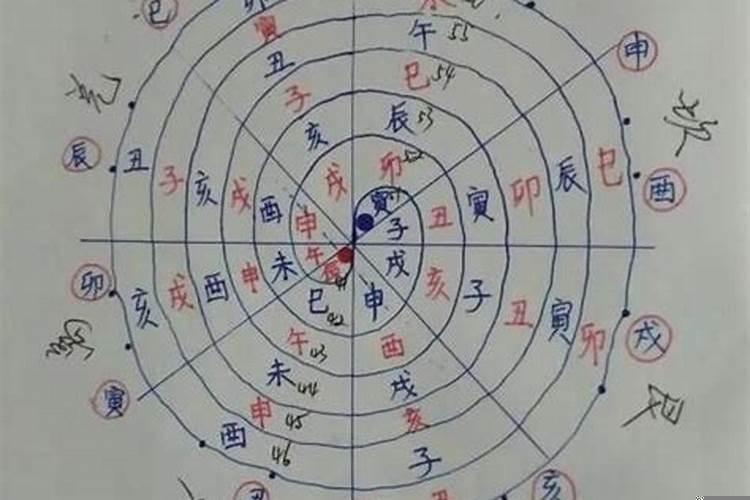 巳
寅
午 55
丑
申
巳 54
子
辰 53
亥
辰
丑
子
亥
戌
酉
戌
卯 52
寅
丑
寅
卯
辰
巳
酉
申
子
午
未
申
酉
戌
亥
卯
戌
亥
子
丑
寅
卯
戌
巳 42
申
午 43
酉
未 44
戌
寅
申 45
亥
酉 46
子
丑
亥